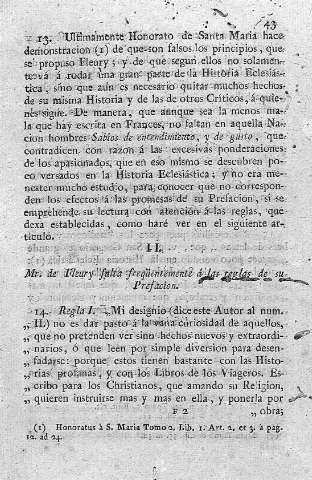 43
13. Ultimamente Honorato de Santa Maria hace
demonstracion (1) de que son falsos los principios, que
se propuso Fleury; y de que segun ellos no solamen-
te vá á rodar una gran parte de la Historia Eclesiás-
tica, sino que aún es necesario quitar muchos hechos
de su misma Historia y de las de otros Críticos, á quie-
nes sigue. De manera, que aunque sea la menos ma-
la que hay escrita en Frances, no faltan en aquella Na-
cion hombres Sabios de entendimiento, y de gusto, que
contradicen con razon á las excesivas ponderaciones
de los apasionados, que en eso mismo se descubren po-
co versados en la Historia Eclesiástica; y no era me-
nester mucho estudio, para conocer que no correspon-
den los efectos á las promesas de su Prefacion, si se
emprehende su lectura con atención á las reglas, que
dexa establecidas, como haré ver en el siguiente ar-
tículo.
II.
Mr. de Fleury falta freqüentemente á las reglas de su
Prefacion.
14. Regla I. „Mi designio (dice este Autor al num.
„ II.) no es dar pasto á la vana curiosidad de aquellos,
„ que no pretenden ver sino hechos nuevos y extraordi-
„ narios, ó que leen por simple diversion para desen-
„ fadarse: porque estos tienen bastante con las Histo-
„ rias profanas, y con los Libros de los Viageros. Es-
„ cribo para los Christianos, que amando su Religion,
„ quieren instruirse mas y mas en ella, y ponerla por
F 2 „ obra;
(1) Honoratus à S. Maria Tomo 2. Lib. 1. Art. 2. et 3. à pag.
12. ad 24.